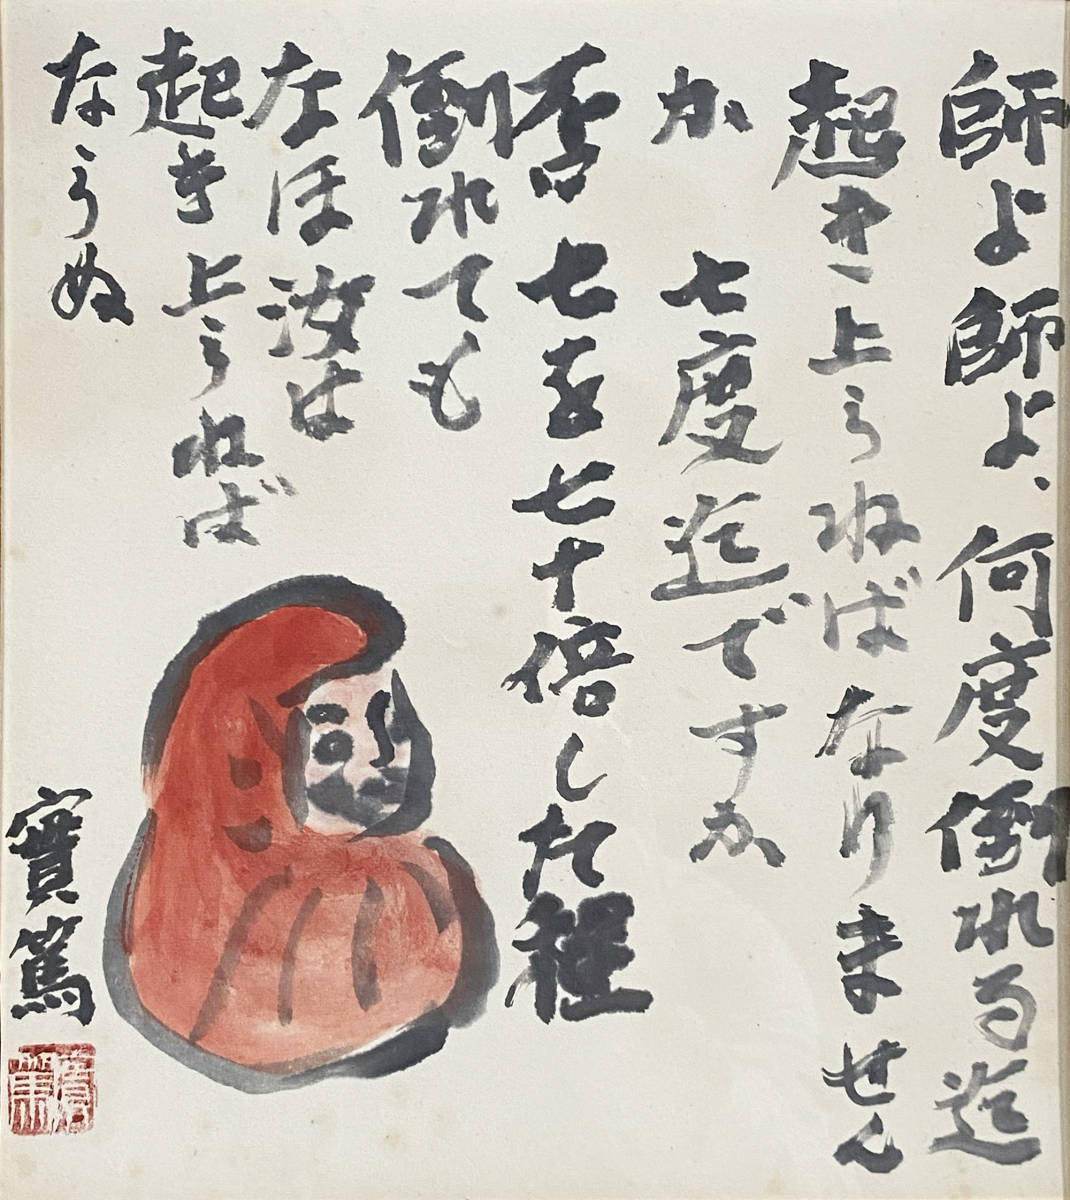 師よ師よ、何度倒れる迄
起き上らねばなりません
か 七度迄ですか
否 七を七十倍した程
倒れても
なほ汝は
起き上らねば
ならぬ
實篤